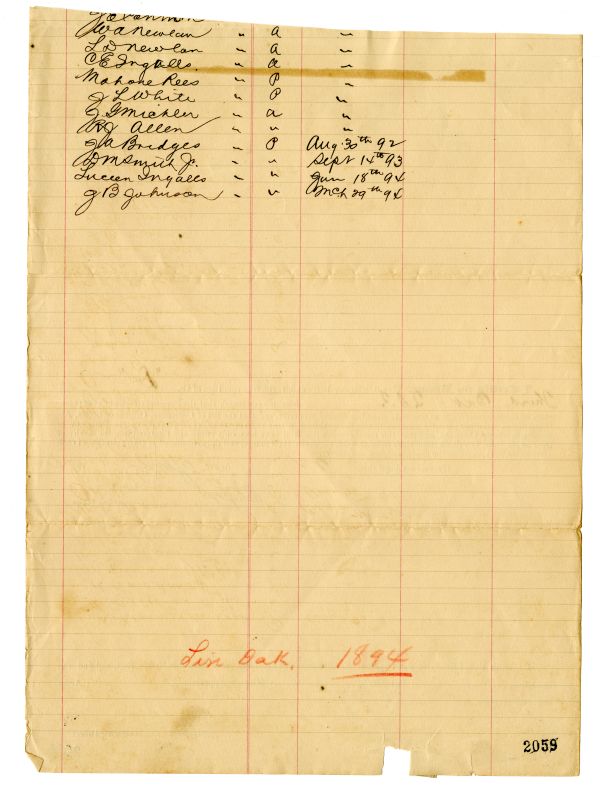 W A Newlan " a "
L D Newlan " a "
C E Ingalls. " a
Mahone Rees " P "
J L White " P "
J G Michler " a "
R J Allen " " "
J A Bridges " P Aug. 30th 92
D M Smith Jr. " " Sept 14th 93
Lucien Ingalls " " Jan 18th 94
J B Johnson " " Mch 29th 94
Live Oak. 1894
2059